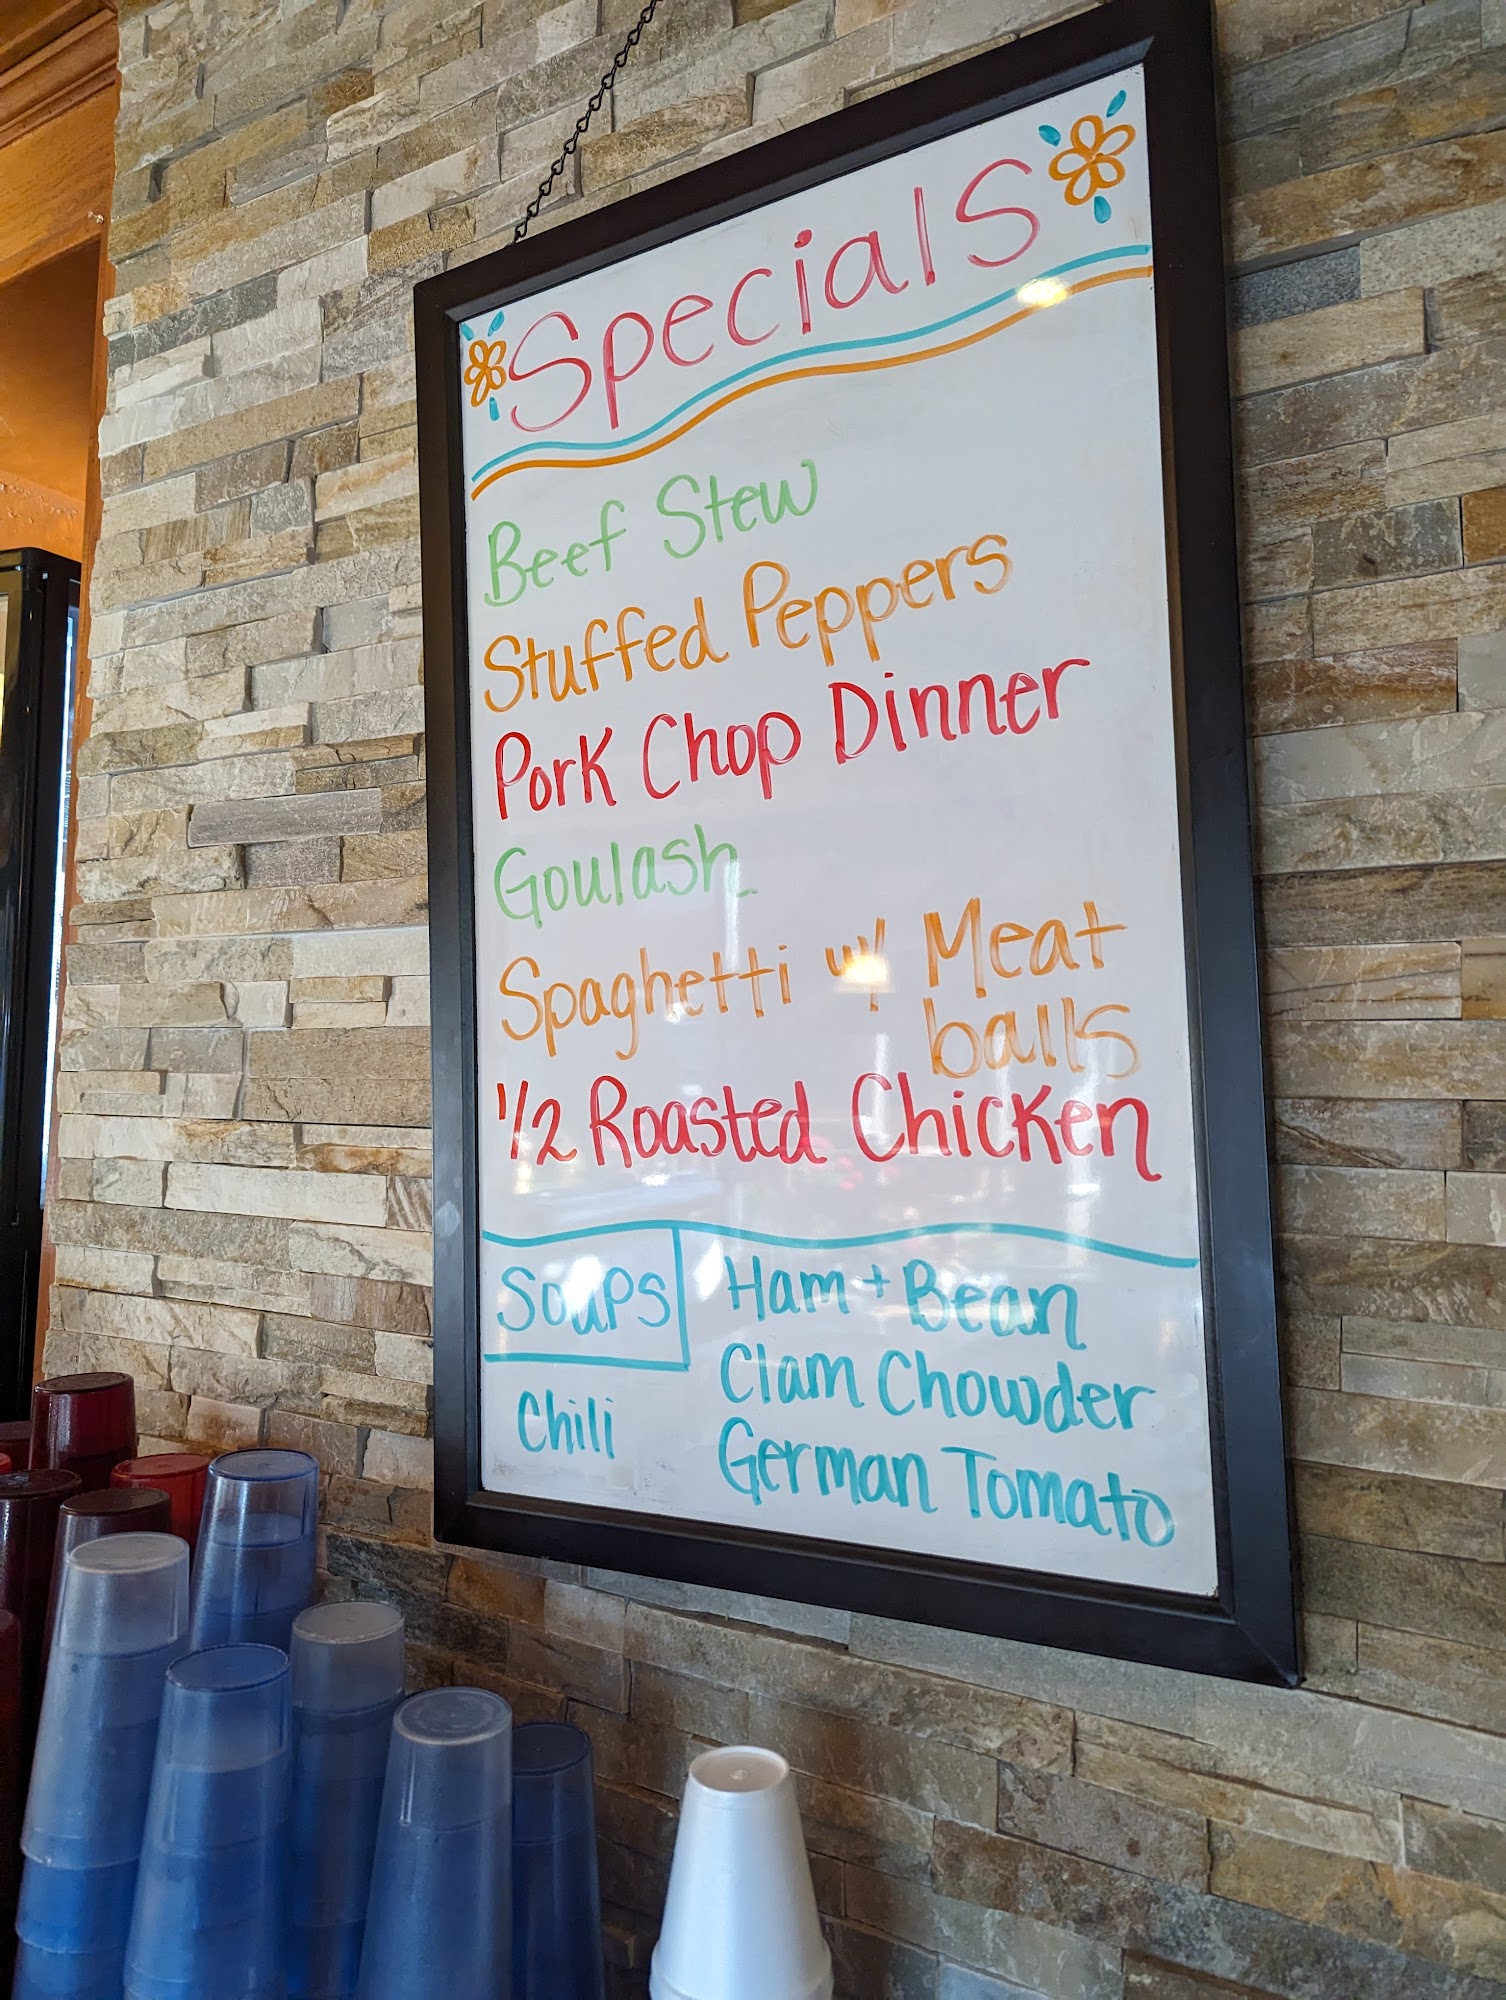 Specials
Beef Stew
Stuffed Peppers
Pork Chop Dinner
Goulash
Spaghetti w/ Meat
balls
1/2 Roasted Chicken
Soups
Ham + Bean
Clam Chowder
Chili
German Tomato